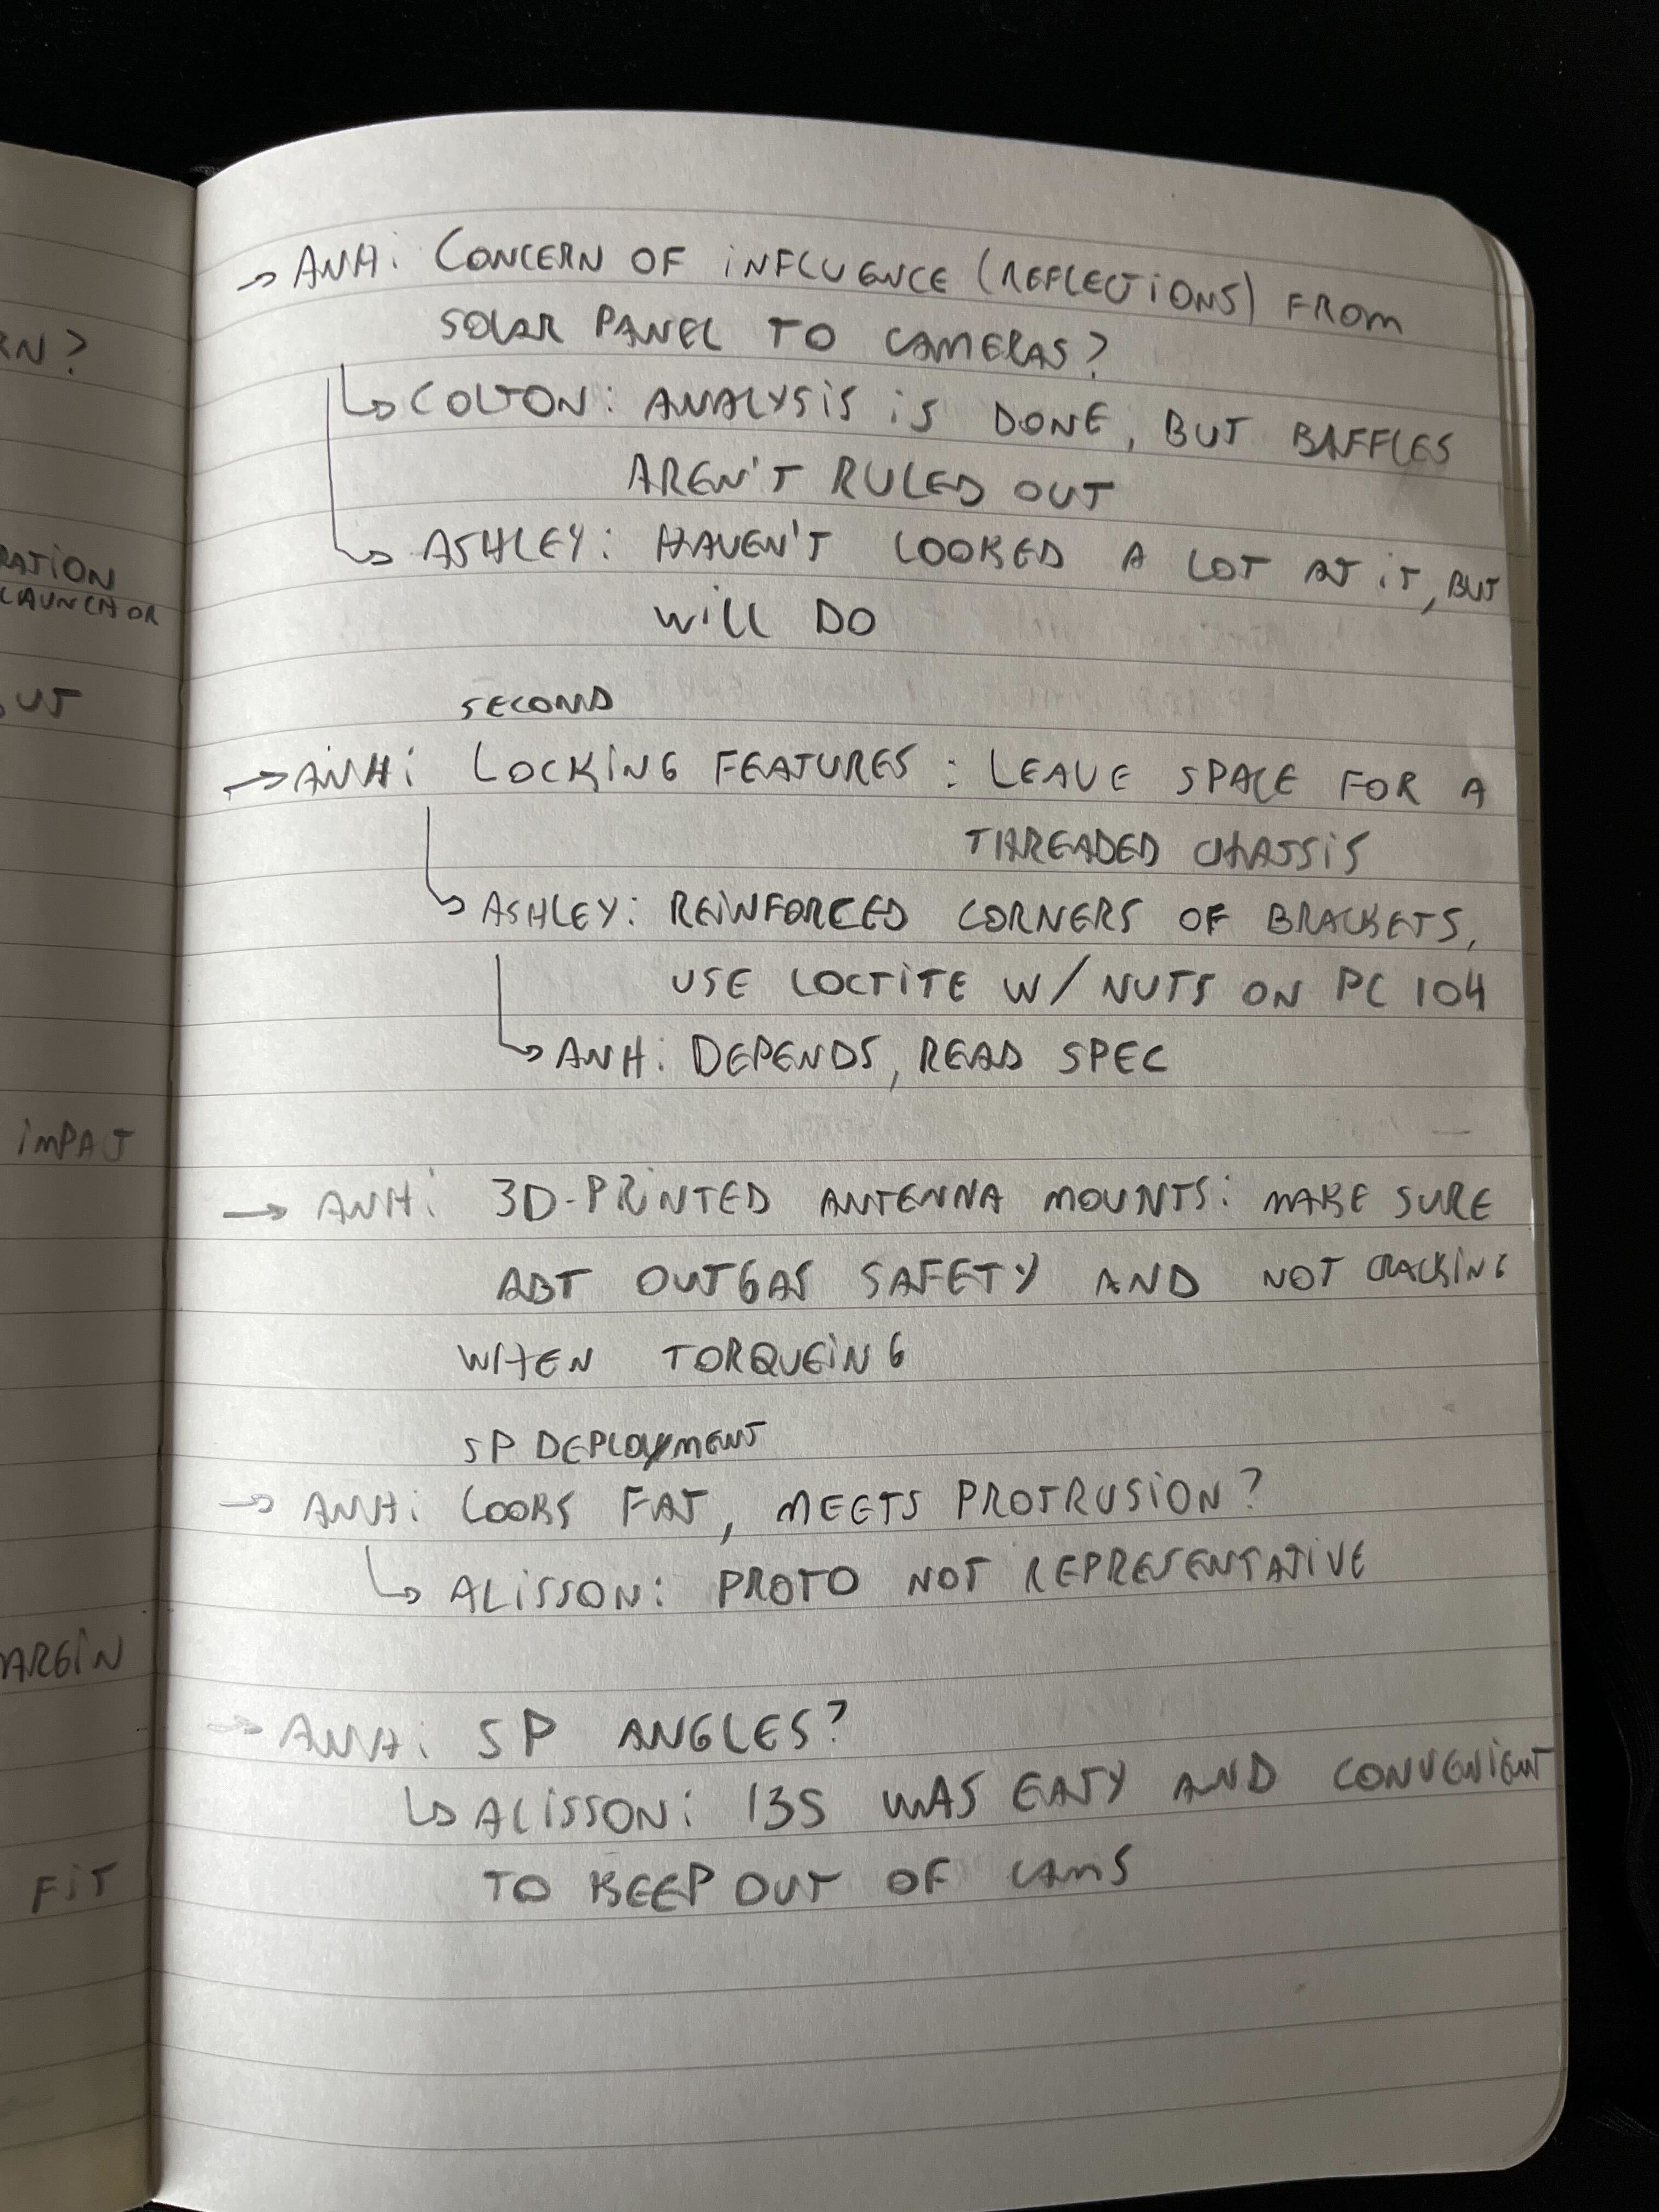 RN?
RATION
LAUNCHOR
UT
IMPACT
MARGIN
FIT
→ ANH: CONCERN OF INFLUENCE (REFLECTIONS) FROM
SOLAR PANEL TO CAMERAS?
↳ COLTON: ANALYSIS IS DONE, BUT BAFFLES
AREN'T RULED OUT
↳ ASHLEY: HAVEN'T LOOKED A LOT AT IT, BUT
WILL DO
SECOND
→ ANH: LOCKING FEATURES: LEAVE SPACE FOR A
THREADED CHASSIS
↳ ASHLEY: REINFORCED CORNERS OF BRACKETS,
USE LOCTITE W/ NUTS ON PC 104
↳ ANH: DEPENDS, READ SPEC
→ ANH: 3D-PRINTED ANTENNA MOUNTS: MAKE SURE
ABT OUTGAS SAFETY AND NOT CRACKING
WHEN TORQUEING
SP DEPLOYMENT
→ ANH: LOOKS FAT, MEETS PROTRUSION?
↳ ALISSON: PROTO NOT REPRESENTATIVE
→ ANH: SP ANGLES?
↳ ALISSON: 135 WAS EASY AND CONVENIENT
TO KEEP OUT OF CAMS